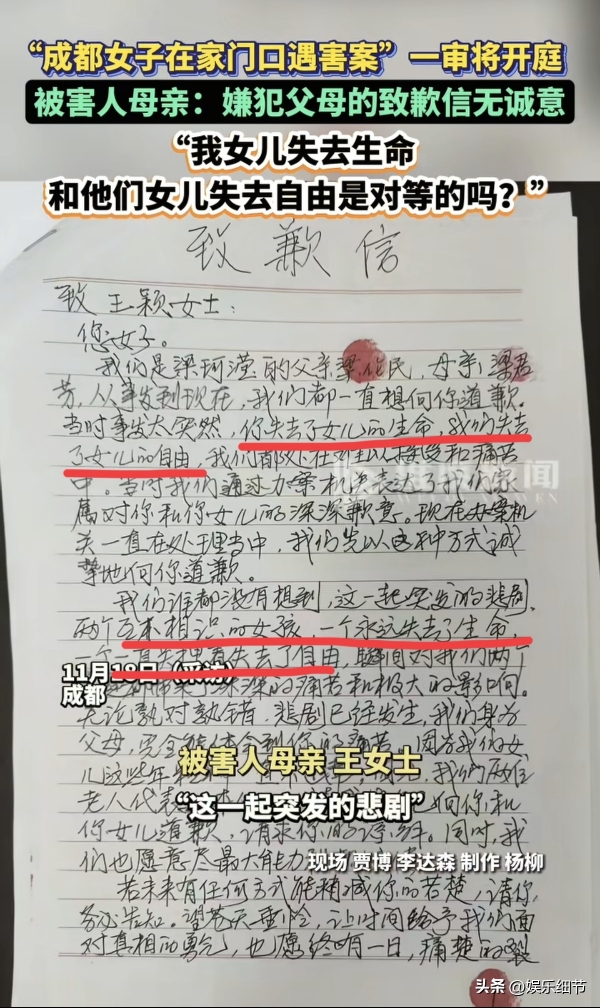 “成都女子在家门口遇害案”一审将开庭
被害人母亲：嫌犯父母的致歉信无诚意
“我女儿失去生命
和他们女儿失去自由是对等的吗？”
致歉信
致王颖女士：
您好。
我们是梁珂滢的父亲梁 民，母亲梁君
芳，从事发到现在，我们都一直想向你道歉。
当时事发太突然，你失去了女儿的生命，我们失去
了女儿的自由，我们都处在难以接受和痛苦
中。当时我们通过办案机关表达了我们家
属对你和你女儿的深深歉意。现在办案机
关一直在处理当中，我们先以这种方式诚
挚地向你道歉。
新闻
我们谁都没有想到，这一起突发的悲剧，
两个互不相识的女孩，一个永远失去了生命，
一个 失去了自由，瞬间对我们两个
11月18日（采访）
成都
带来了深深的痛苦和极大的影响。
无论孰对孰错，悲剧已经发生，我们身为
父母，完全能体会到你的 因为我们女
儿这些年 我们两位
被害人母亲 王女士
老人代表 向你和
“这一起突发的悲剧”
你女儿道歉，请求你的谅解。同时，我
们也愿意尽最大能力
现场 贾博 李达森 制作 杨柳
若未来有任何方式能稍减你的苦楚，请你
务必告知。望苍天垂怜，让时间给予我们面
对真相的勇气，也愿终有一日，痛楚的裂
头条 @娱乐细节